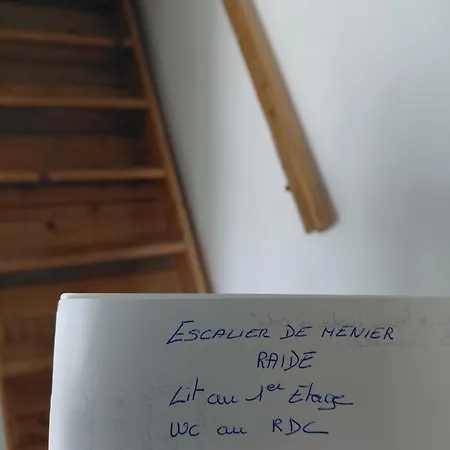 ESCALIER DE MENIER
RAIDE
Lit au 1er Etage
WC au RDC